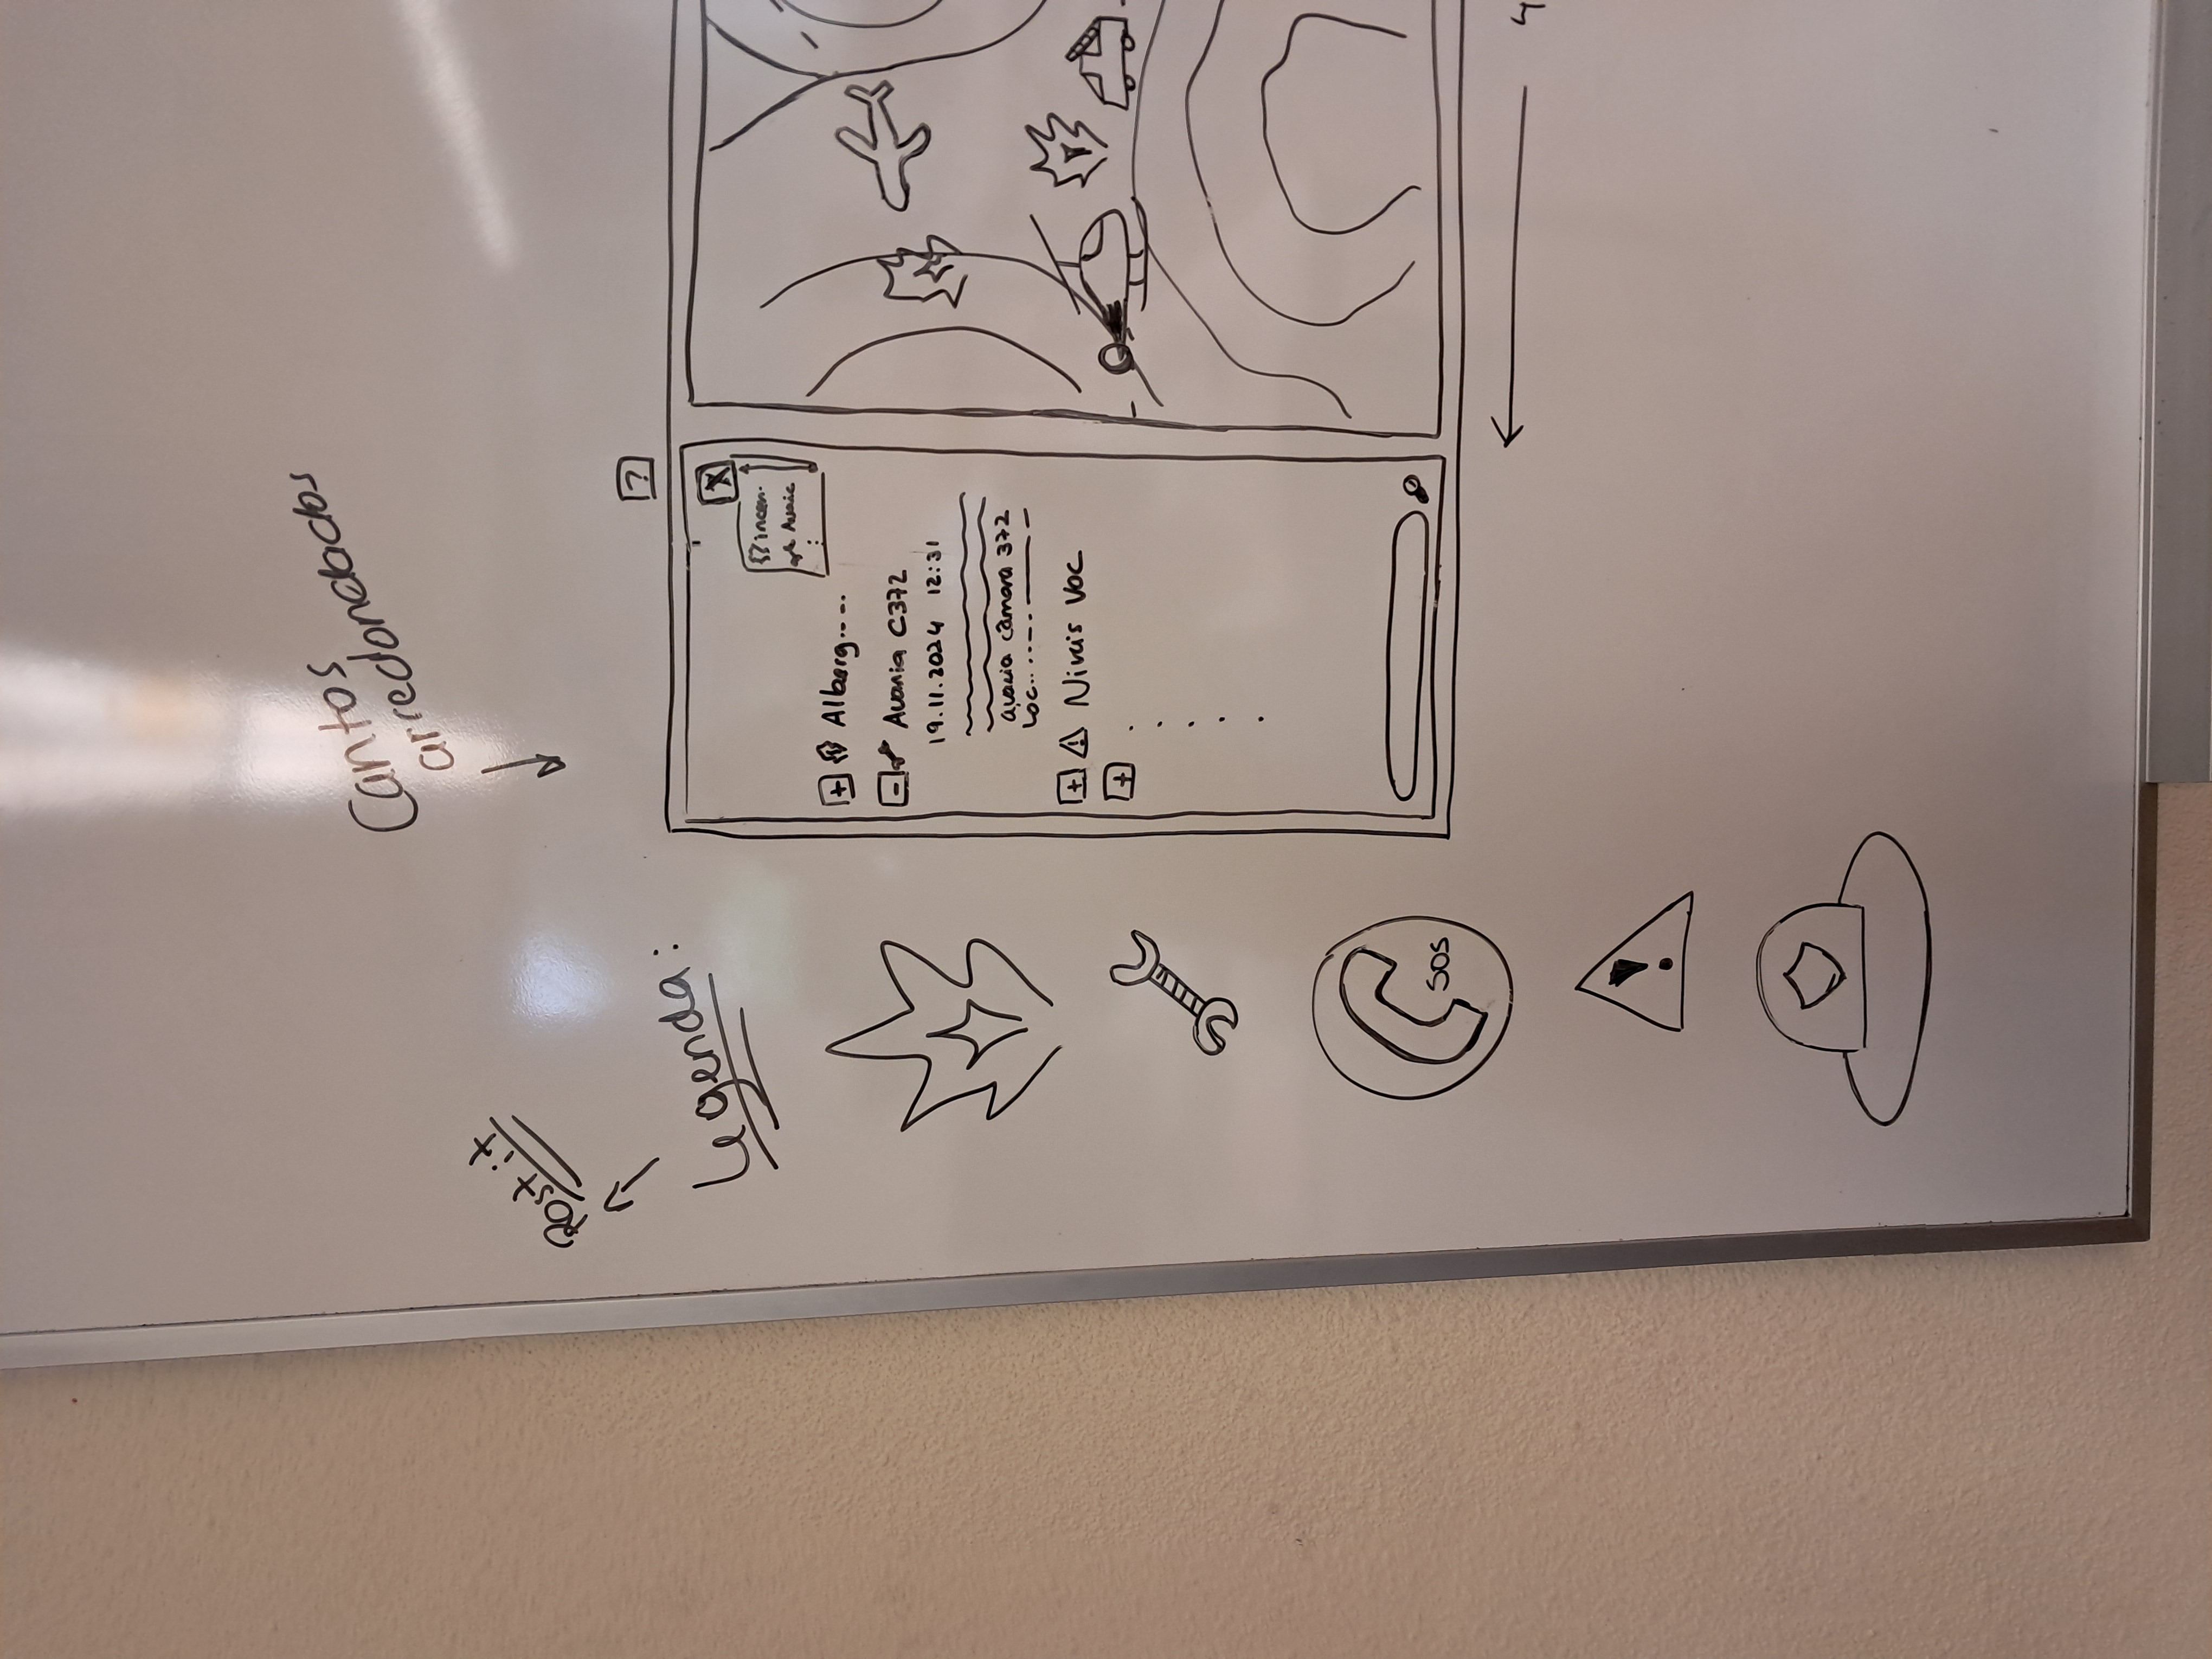 Cantos
arredondados
Post it
Legenda:
?
X
incen.
Avaic
+ Alberg....
- Avaria C372
19.11.2024 12:31
avaria câmara 372
Loc.
+ ! Niveis Voc
+
SOS
!
4